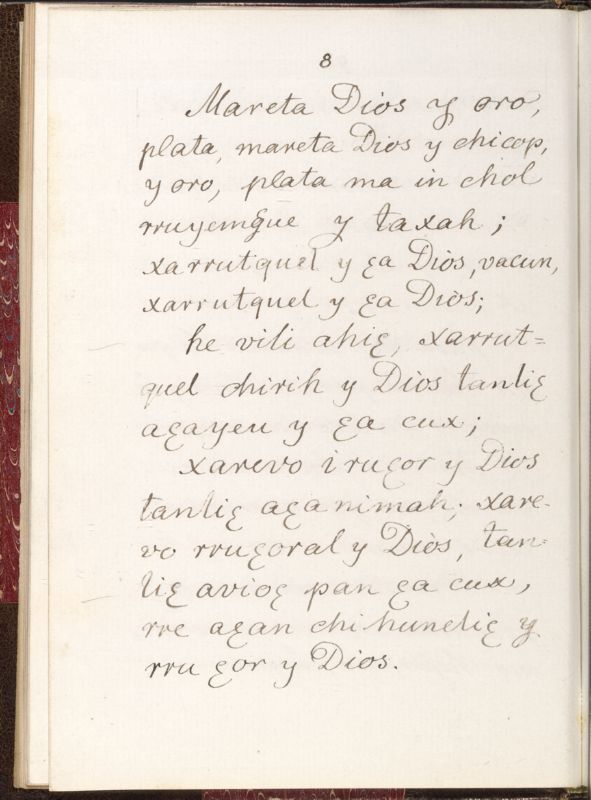 8
Mareta Dios y oro,
plata, mareta Dios y chicop,
y oro, plata ma in chol
rruyemgue y taxah;
xarrutquel y ꜫa Dios, vacun,
xarrutquel y ꜫa Dios;
he vili ahiꜫ, xarrut=
quel chirih y Dios tanliꜫ
aꜫayeu y ꜫa cux;
xarevo i ruꜫor y Dios
tanliꜫ aꜫa nimah; xare-
vo rruꜫoral y Dios, tan-
liꜫ avioꜫ pan ꜫa cux,
rre aꜫan chi huneliꜫ y
rru ꜫor y Dios.